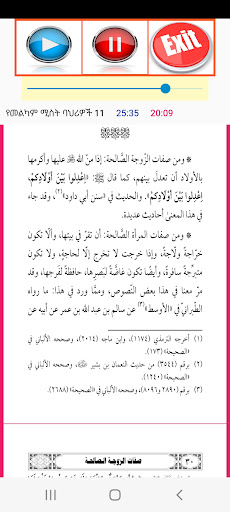 Exit
የመልካም ሚስት ባህሪዎች 11 25:35 20:09
ﷺ ﷺ ﷺ
* ومن صفات الزوجة الصَّالحة: إذا منّ الله ﷻ عليها وأكرمها
بالأولاد أن تعدل بينهم، كما قال ﷺ: «اعْدِلُوا بَيْنَ أَوْلَادِكُمْ،
اعْدِلُوا بَيْنَ أَوْلَادِكُمْ». والحديث في «سنن أبي داود»(٢)، وقد جاء
في هذا المعنى أحاديث عديدة.
* ومن صفات المرأة الصَّالحة: أن تقرّ في بيتها، وألَّا تكون
خرَّاجة ولَّاجة، وإذا خرجت لا تخرج إلَّا لحاجة، ولا تكون
متبرّجة سافرة، وأيضًا تكون غاضَّة لبَصرِها، حافظةً لفَرجِها، وقد
مرّ معنا في هذا بعض النُّصوص، وممَّا ورد في هذا: ما رواه
الطَّبرانيّ في «الأوسط»(٣) عن سالم بن عبد الله بن عمر عن أبيه عن
(١) أخرجه الترمذي (١١٧٤)، وابن ماجه (٢٠١٤)، وصححه الألباني في
«الصحيحة» (١٧٣).
(٢) برقم (٣٥٤٤) من حديث النعمان بن بشير، وصححه الألباني في
«الصحيحة» (١٢٤٠).
(٣) برقم (٢٨٩٠ و٨٠٩٦)، وصححه الألباني في «الصحيحة» (٢٦٨٨).
صفات الزوجة الصالحة
٣٠